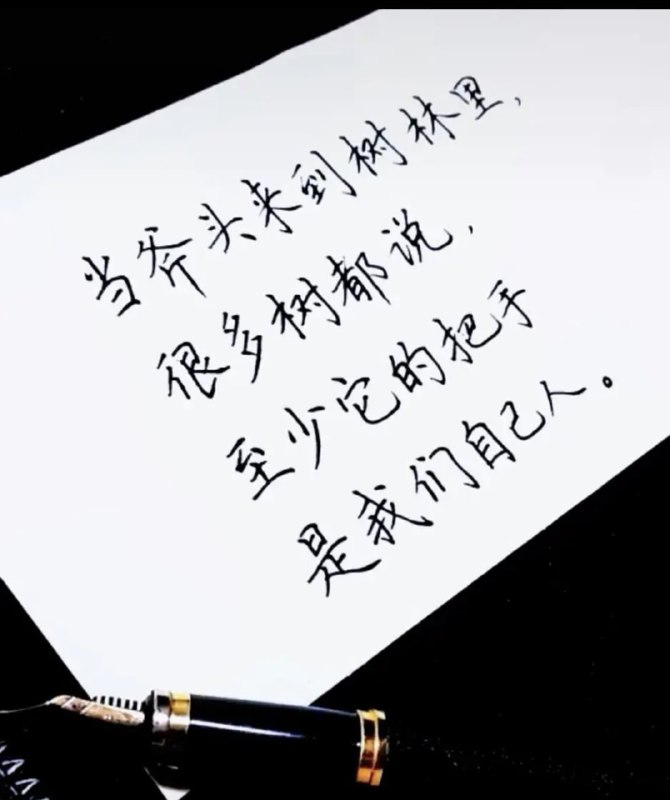 当斧头来到树林里，
很多树都说，
至少它的把手
是我们自己人。